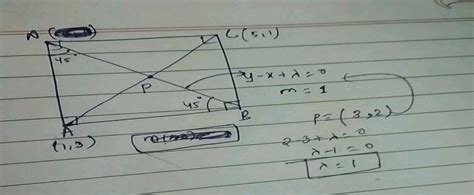 A
C(5,1)
45°
P
y-x+λ=0
m = 1
45°
B
P = (3,2)
A
(1,3)
2-3+λ=0
λ-1=0
λ=1